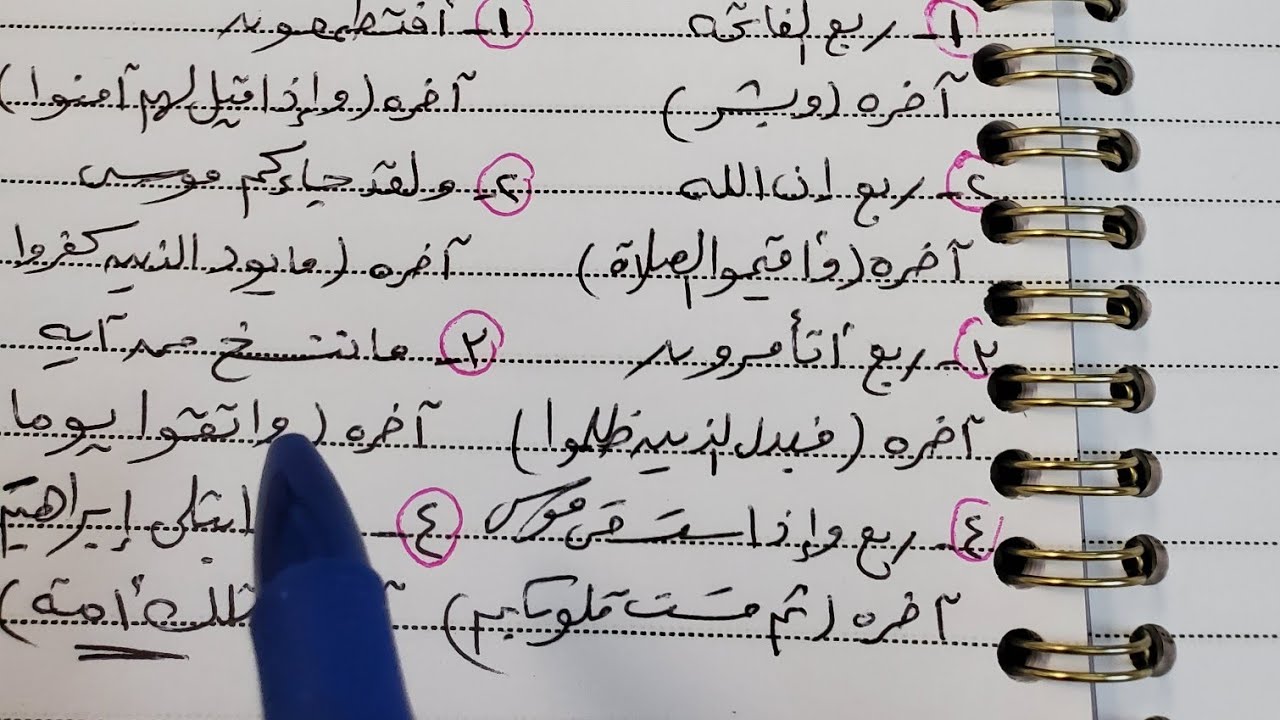 ١- ربع الفاتحة ١- أفتطمعون
آخره (وبشر) آخره (وإذا قيل لهم آمنوا)
٢- ربع إن الله ٢- ولقد جاءكم موسى
آخره (وأقيموا الصلاة) آخره (ما يود الذين كفروا
٣- ربع أتأمرون ٣- ما ننسخ من آية
آخره (فبدل الذين ظلموا) آخره (واتقوا يوما
٤- ربع وإذ استسقى موسى ٤- ابتلى إبراهيم
آخره (ثم قست قلوبكم) تلك أمة)